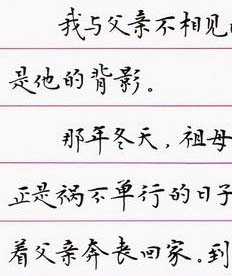 我与父亲不相见
是他的背影。
那年冬天，祖母
正是祸不单行的日子
着父亲奔丧回家。到